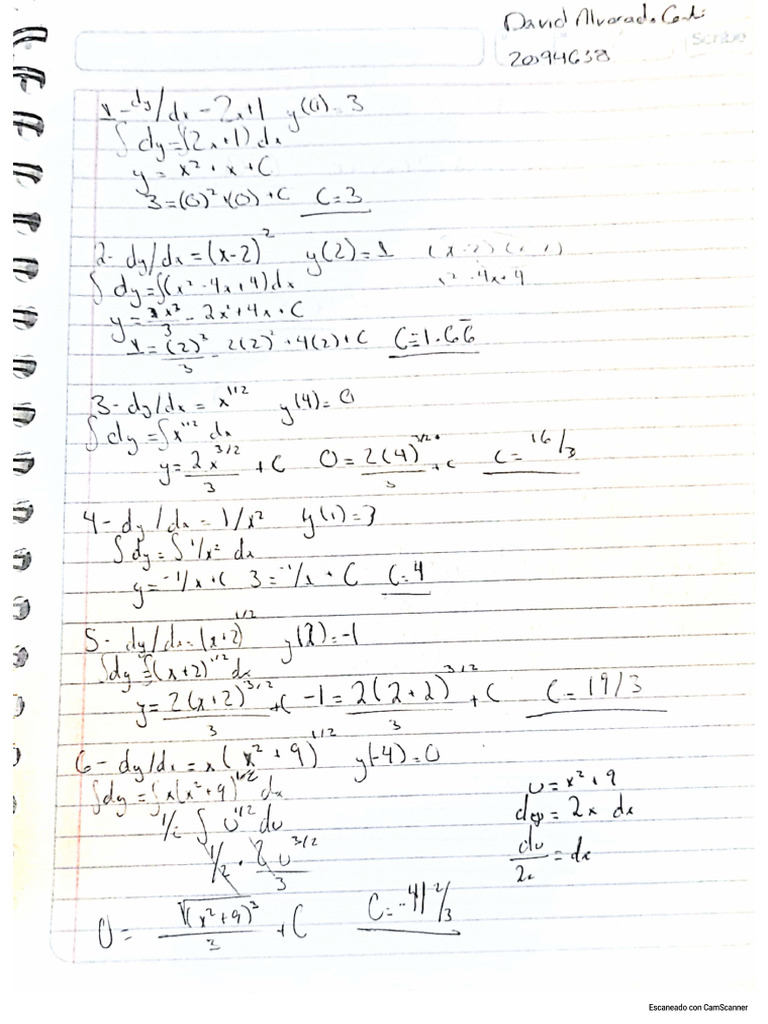 David Alvarado
20194638
Scribe
1- dy/dx = 2x+1 y(0)=3
∫ dy=∫(2x+1) dx
y = x² + x + C
3=(0)²+(0)+C C=3
2- dy/dx = (x-2)² y(2)=1 (x-2)(x-2)
∫ dy=∫(x²-4x+4)dx x²-4x+4
y= x³/3 - 2x²+4x+C
1= (2)³/3 - 2(2)²+4(2)+C C=1.66
3- dy/dx = x^1/2 y(4)=0
∫ dy=∫x^1/2 dx
y= 2x^3/2/3 + C 0= 2(4)^3/2/3 + C C= 16/3
4- dy/dx = 1/x² y(1)=3
∫ dy=∫ 1/x² dx
y= -1/x + C 3= -1/x + C C=4
5- dy/dx=(x+2)^1/2 y(2)=-1
∫dy=∫(x+2)^1/2 dx
y= 2(x+2)^3/2/3 + C -1= 2(2+2)^3/2/3 + C C=19/3
6- dy/dx = x(x²+9)^1/2 y(-4)=0
∫dy=∫x(x²+9)^1/2 dx u=x²+9
1/2 ∫ u^1/2 du du= 2x dx
1/2 · 2u^3/2/3 du/2x = dx
0= √(x²+9)³/3 + C C=-41 2/3
Escaneado con CamScanner